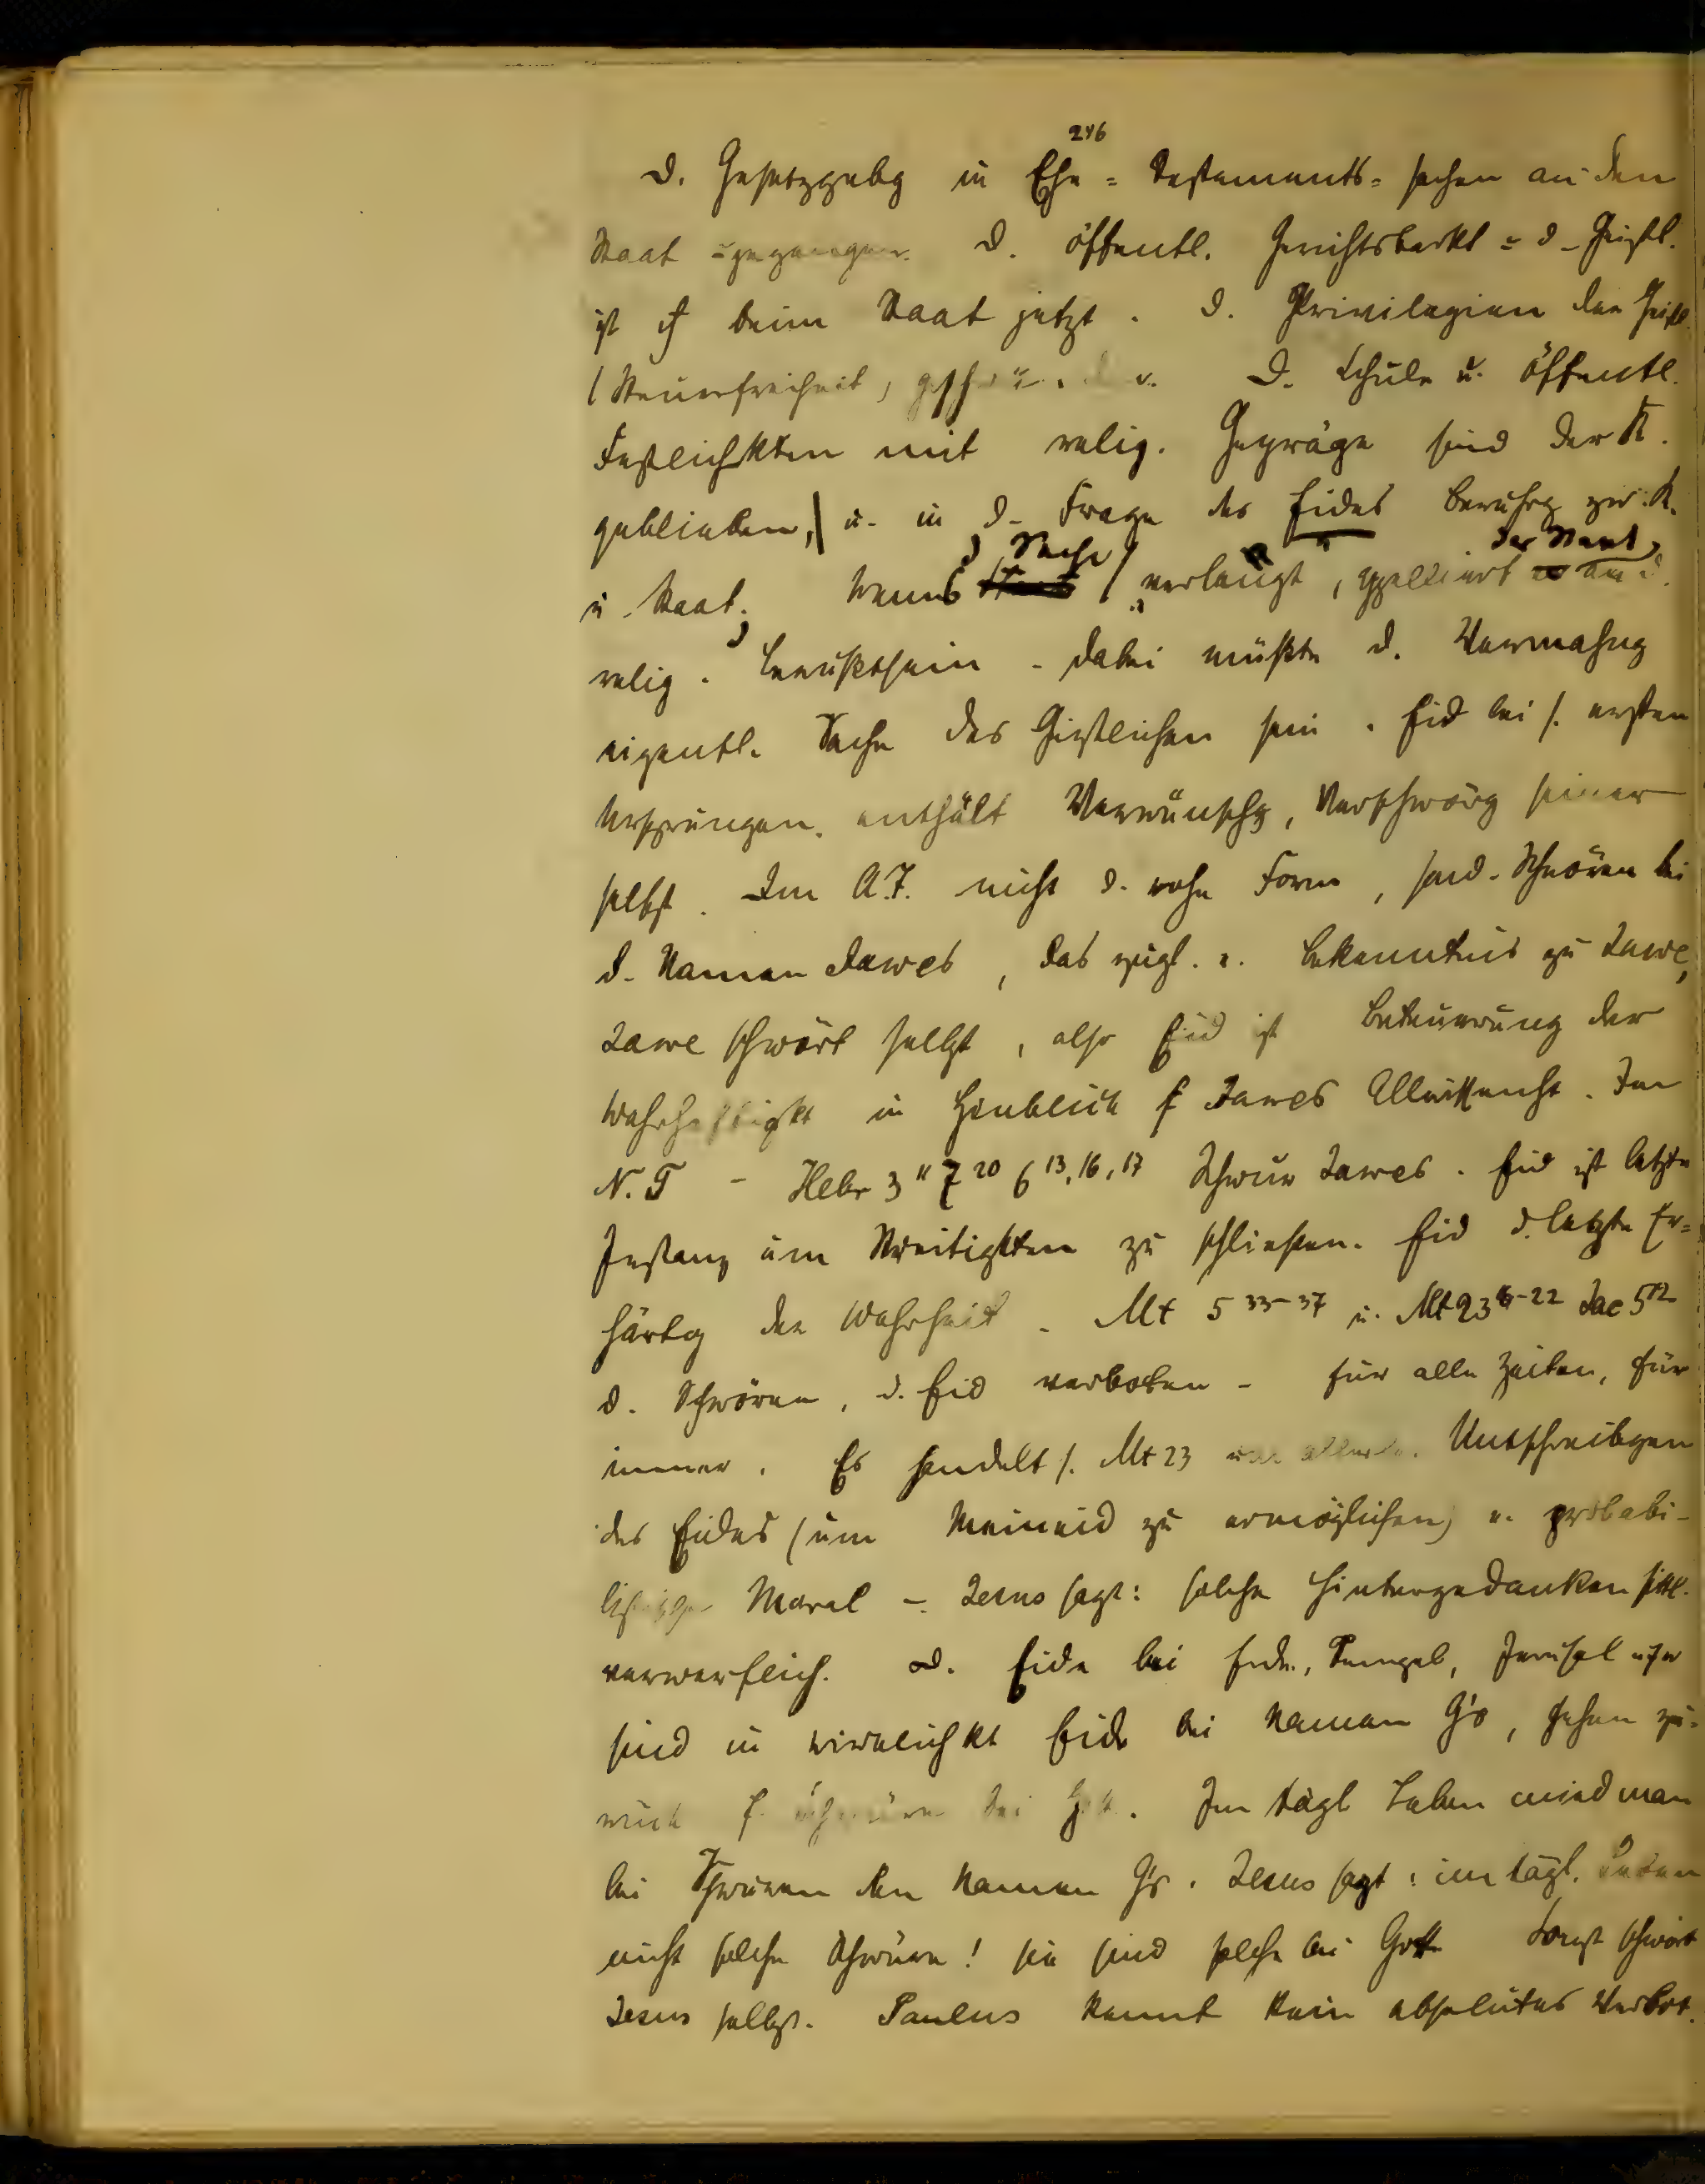 246
D. Gesetzgebg in Ehe = Testaments = sachen an den
Staat übergegangen. D. öffentl. Gerichtsbarkt = d. Geistl.
ist beim Staat jetzt. D. Privilegien der Geistl.
(Steuerfreiheit, D. Schule u. öffentl.
Festlichkten mit relig. Gepräge sind der K.
geblieben, u. in d. Frage des Eides Berührg zw. K.
u. Staat. Wenns d. Sache verlangt, appelliert der Staat an d.
relig. Bewußtsein - dabei müßte d. Vermahng
eigentl. Sache des Geistlichen sein. Eid bei s. ersten
Ursprüngen enthält Verwünschg, Verschwörg seiner
selbst. Im A.T. nicht d. rohe Form, sond. Schwören bei
d. Namen Jawes, das zugl. e. Bekenntnis zu Jawe,
Jawe schwört selbst, also Eid ist Beteuerung der
Wahrhaftigkt in Hinblick f Jawes Allwissenht. Im
N.T - Hebr 3 11 7 20 6 13,16,17 Schwur Jawes. Eid ist letzte
Instanz um Streitigkten zu schließen. Eid d. letzte Er=
härtg der Wahrheit. Mt 5 33-37 u. Mt 23 16-22 Jac 5 12
d. Schwören, d. Eid verboten - für alle Zeiten, für
immer. Es handelt s. Mt 23 um allerlei Umschreibgen
des Eides (um Meineid zu ermöglichen) u. probabi-
listische Moral - Jesus sagt: solche Hintergedanken sittl.
verwerflich. D. Eide bei Erde, Tempel, Jerusal usw
sind in Wirklichkt Eide bei Namen G's, gehen zu=
rück f. Schwüre bei Gott. Im tägl Leben mied man
bei Schwüren den Namen G's. Jesus sagt: im tägl. Leben
nicht solche Schwüre! sie sind solche bei Gott Sonst schwört
Jesus selbst. Paulus kennt kein absolutes Verbot.